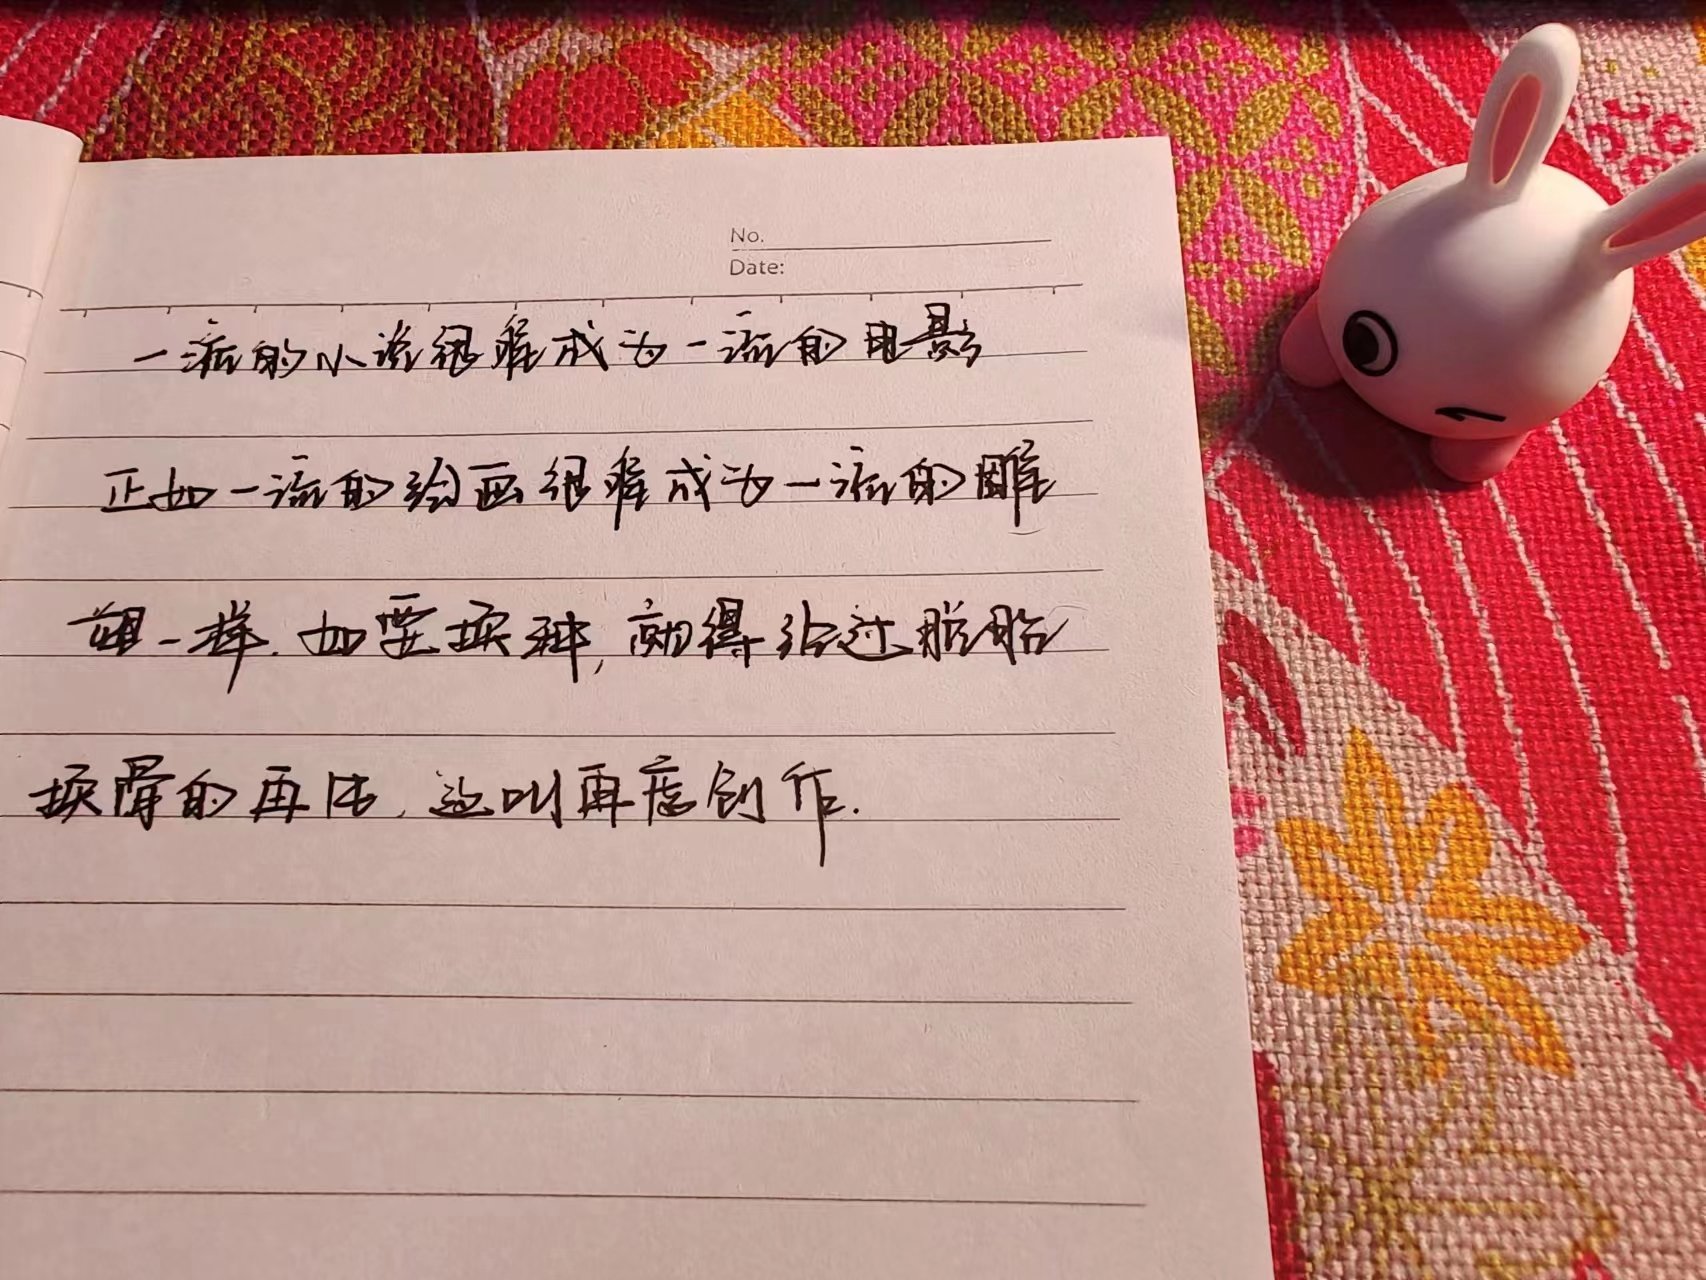 No.
Date:
一流的小说很难成为一流的电影
正如一流的绘画很难成为一流的雕
塑一样.如要换种,就得经过脱胎
换骨的再生,这叫再度创作.